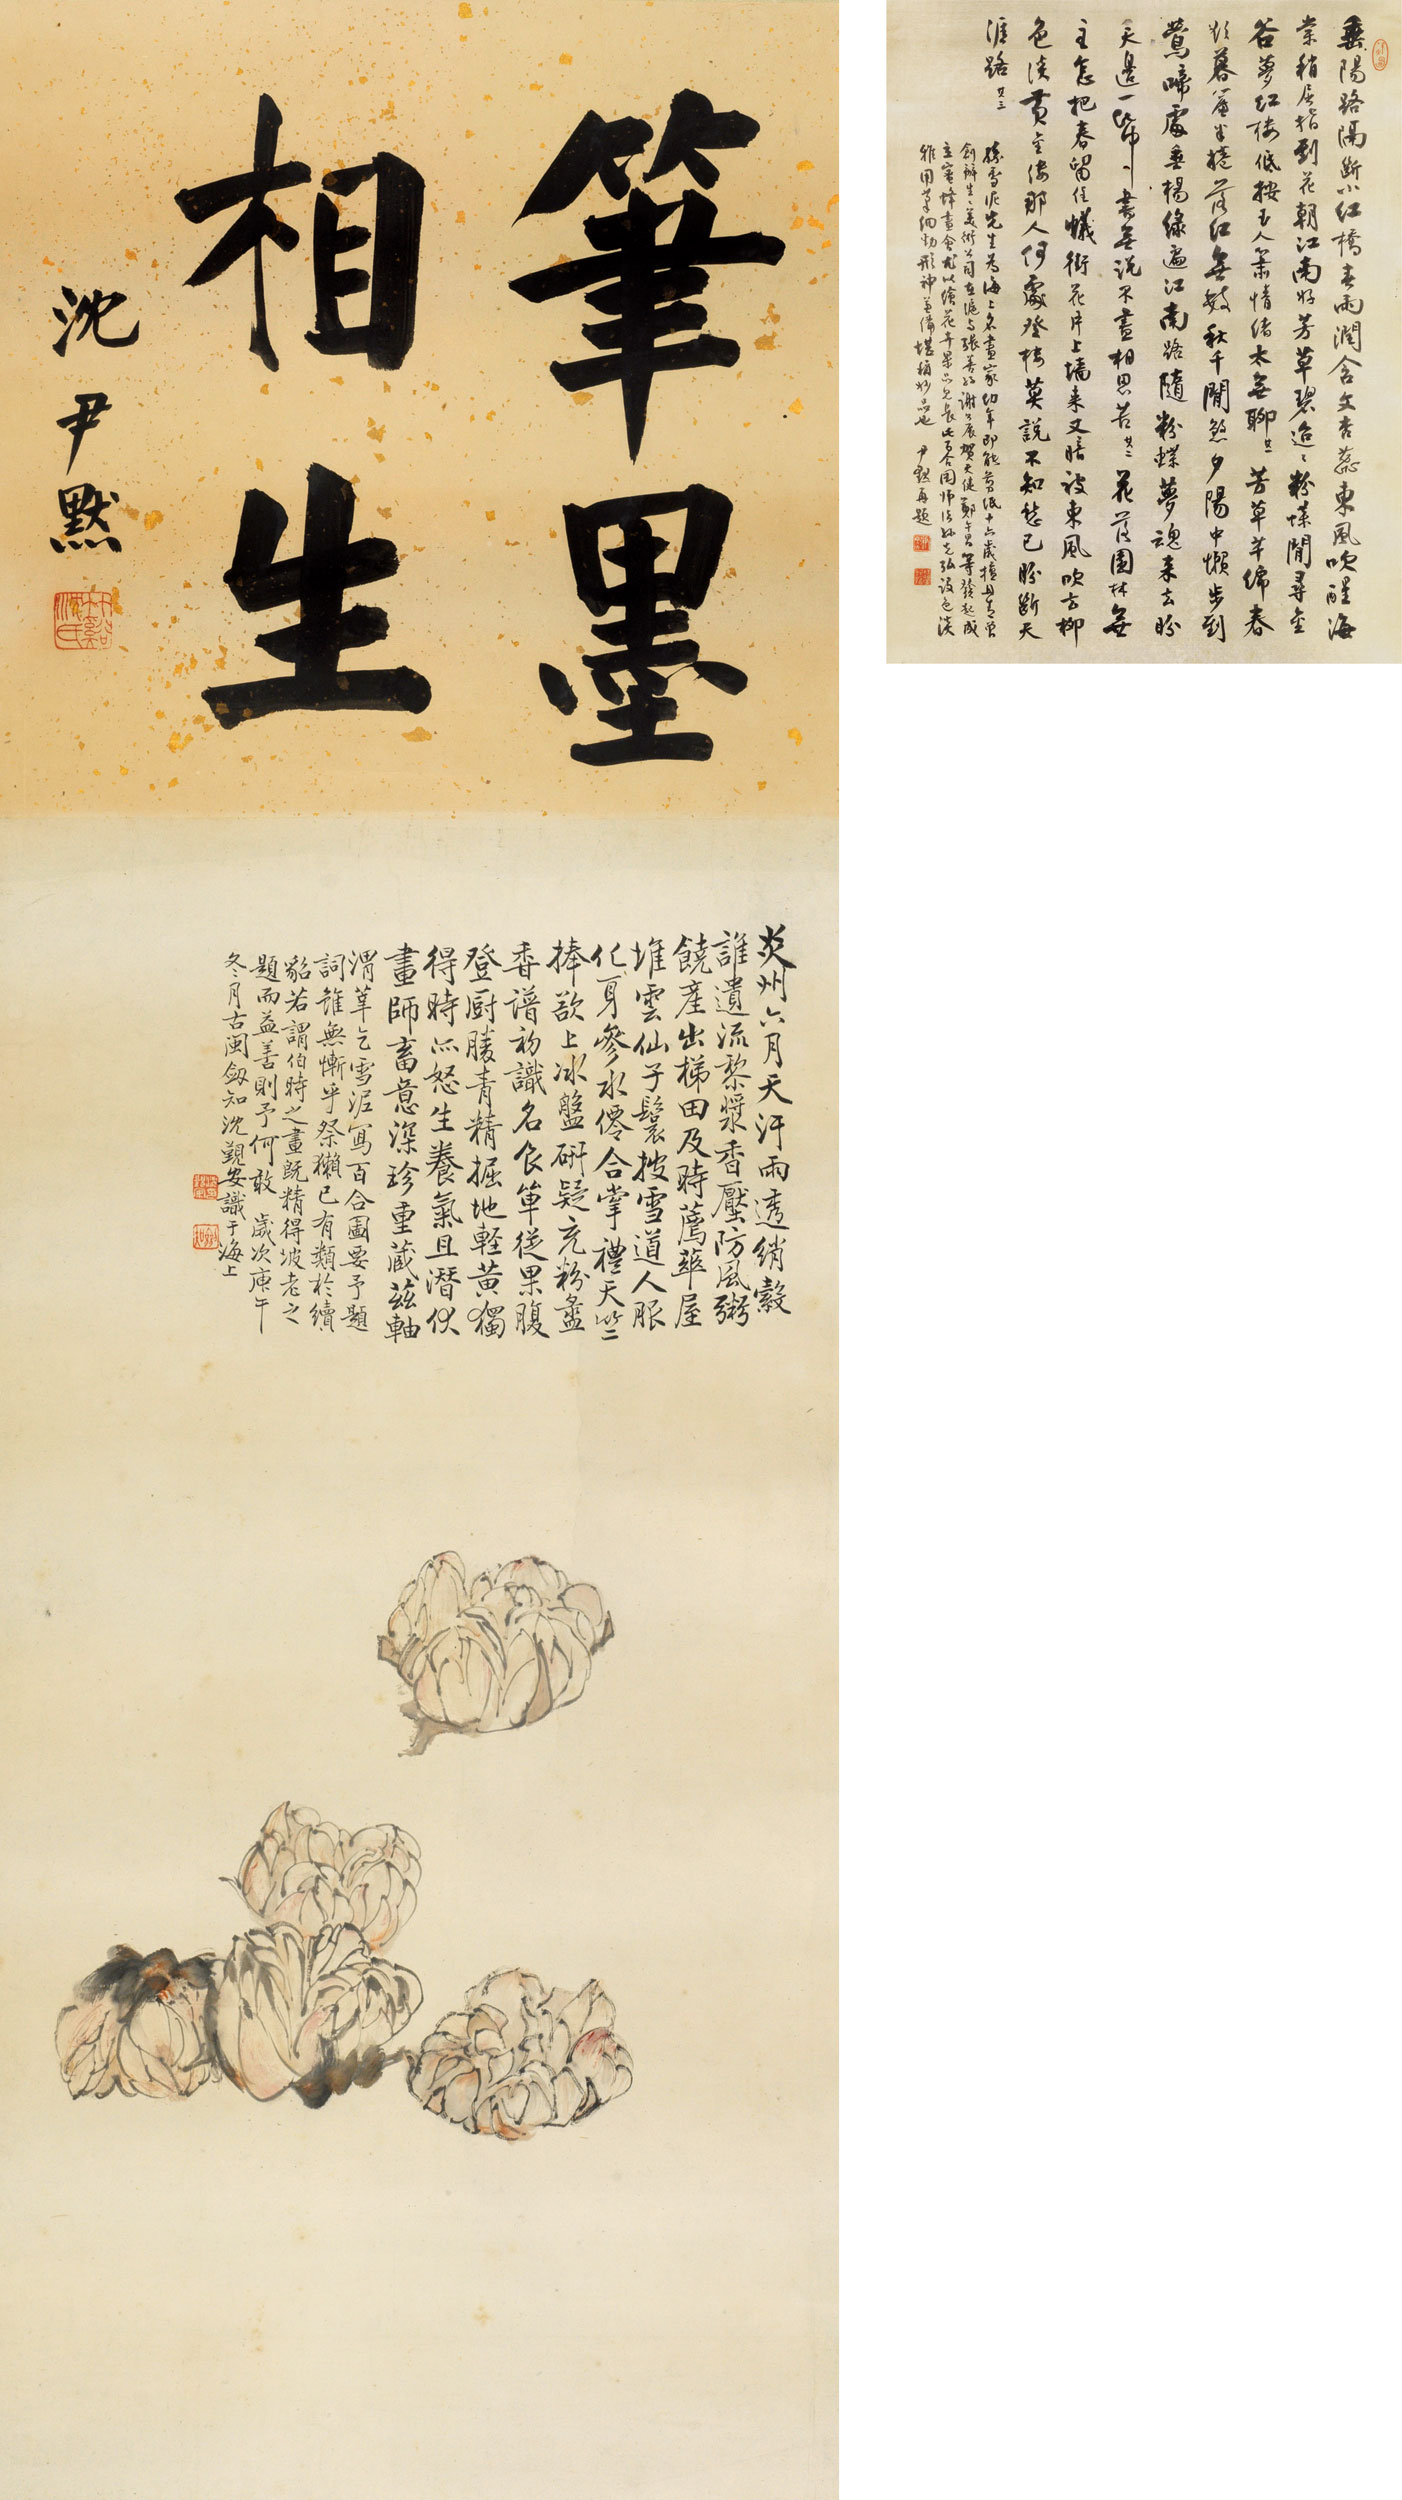 筆墨
相生
沈尹默
炎州六月天汗雨透綃縠
誰遺流黎漿香壓防風粥
饒産出梯田及時薦華屋
堆雲仙子鬟披雪道人服
化身參水僊合掌禮天竺
捧歆上冰盤研疑充粉盝
香譜初識名食單従果腹
登厨勝青精掘地軽黃獨
得時不怒生養氣且潛伏
畫師畜意深珍重蔵茲軸
渭莘乞雪泥寫百合圖要予題
詞雖無慚乎祭獺已有類於續
貂若謂伯時之畫既精得坡老之
題而益善則予何敢 歲次庚午
冬月古閩劍知沈覲安識于海上
垂陽路隔斷小紅橋春雨潤含文杏蕊東風吹醒海
棠梢屈指到花朝江南好芳草碧迢迢粉蝶閒尋金
谷夢紅樓低按玉人簫情緒太無聊其一芳草芊綿春
欲暮簾半捲落紅無數秋千閒煞夕陽中懶步到
鶯啼處垂楊綠遍江南路隨粉蝶夢魂來去盼
天邊一紙書無說不盡相思苦其二花落園林無
主怎把春留住蟻銜花片上墻來又暗被東風吹去柳
色淡黃金縷那人何處登樓莫說不知愁已盼斷天
涯路其三
先生為海上名畫家幼年即能剪紙十六歲擅丹青曾
創辦生生美術公司在滬與張善孖謝公展賀天健鄭午昌等發起成
立蜜蜂畫會尤以繪花卉果品見長此百合圖師法孫克弘設色淡
雅用筆細勁形神兼備堪稱妙品也 尹默再題